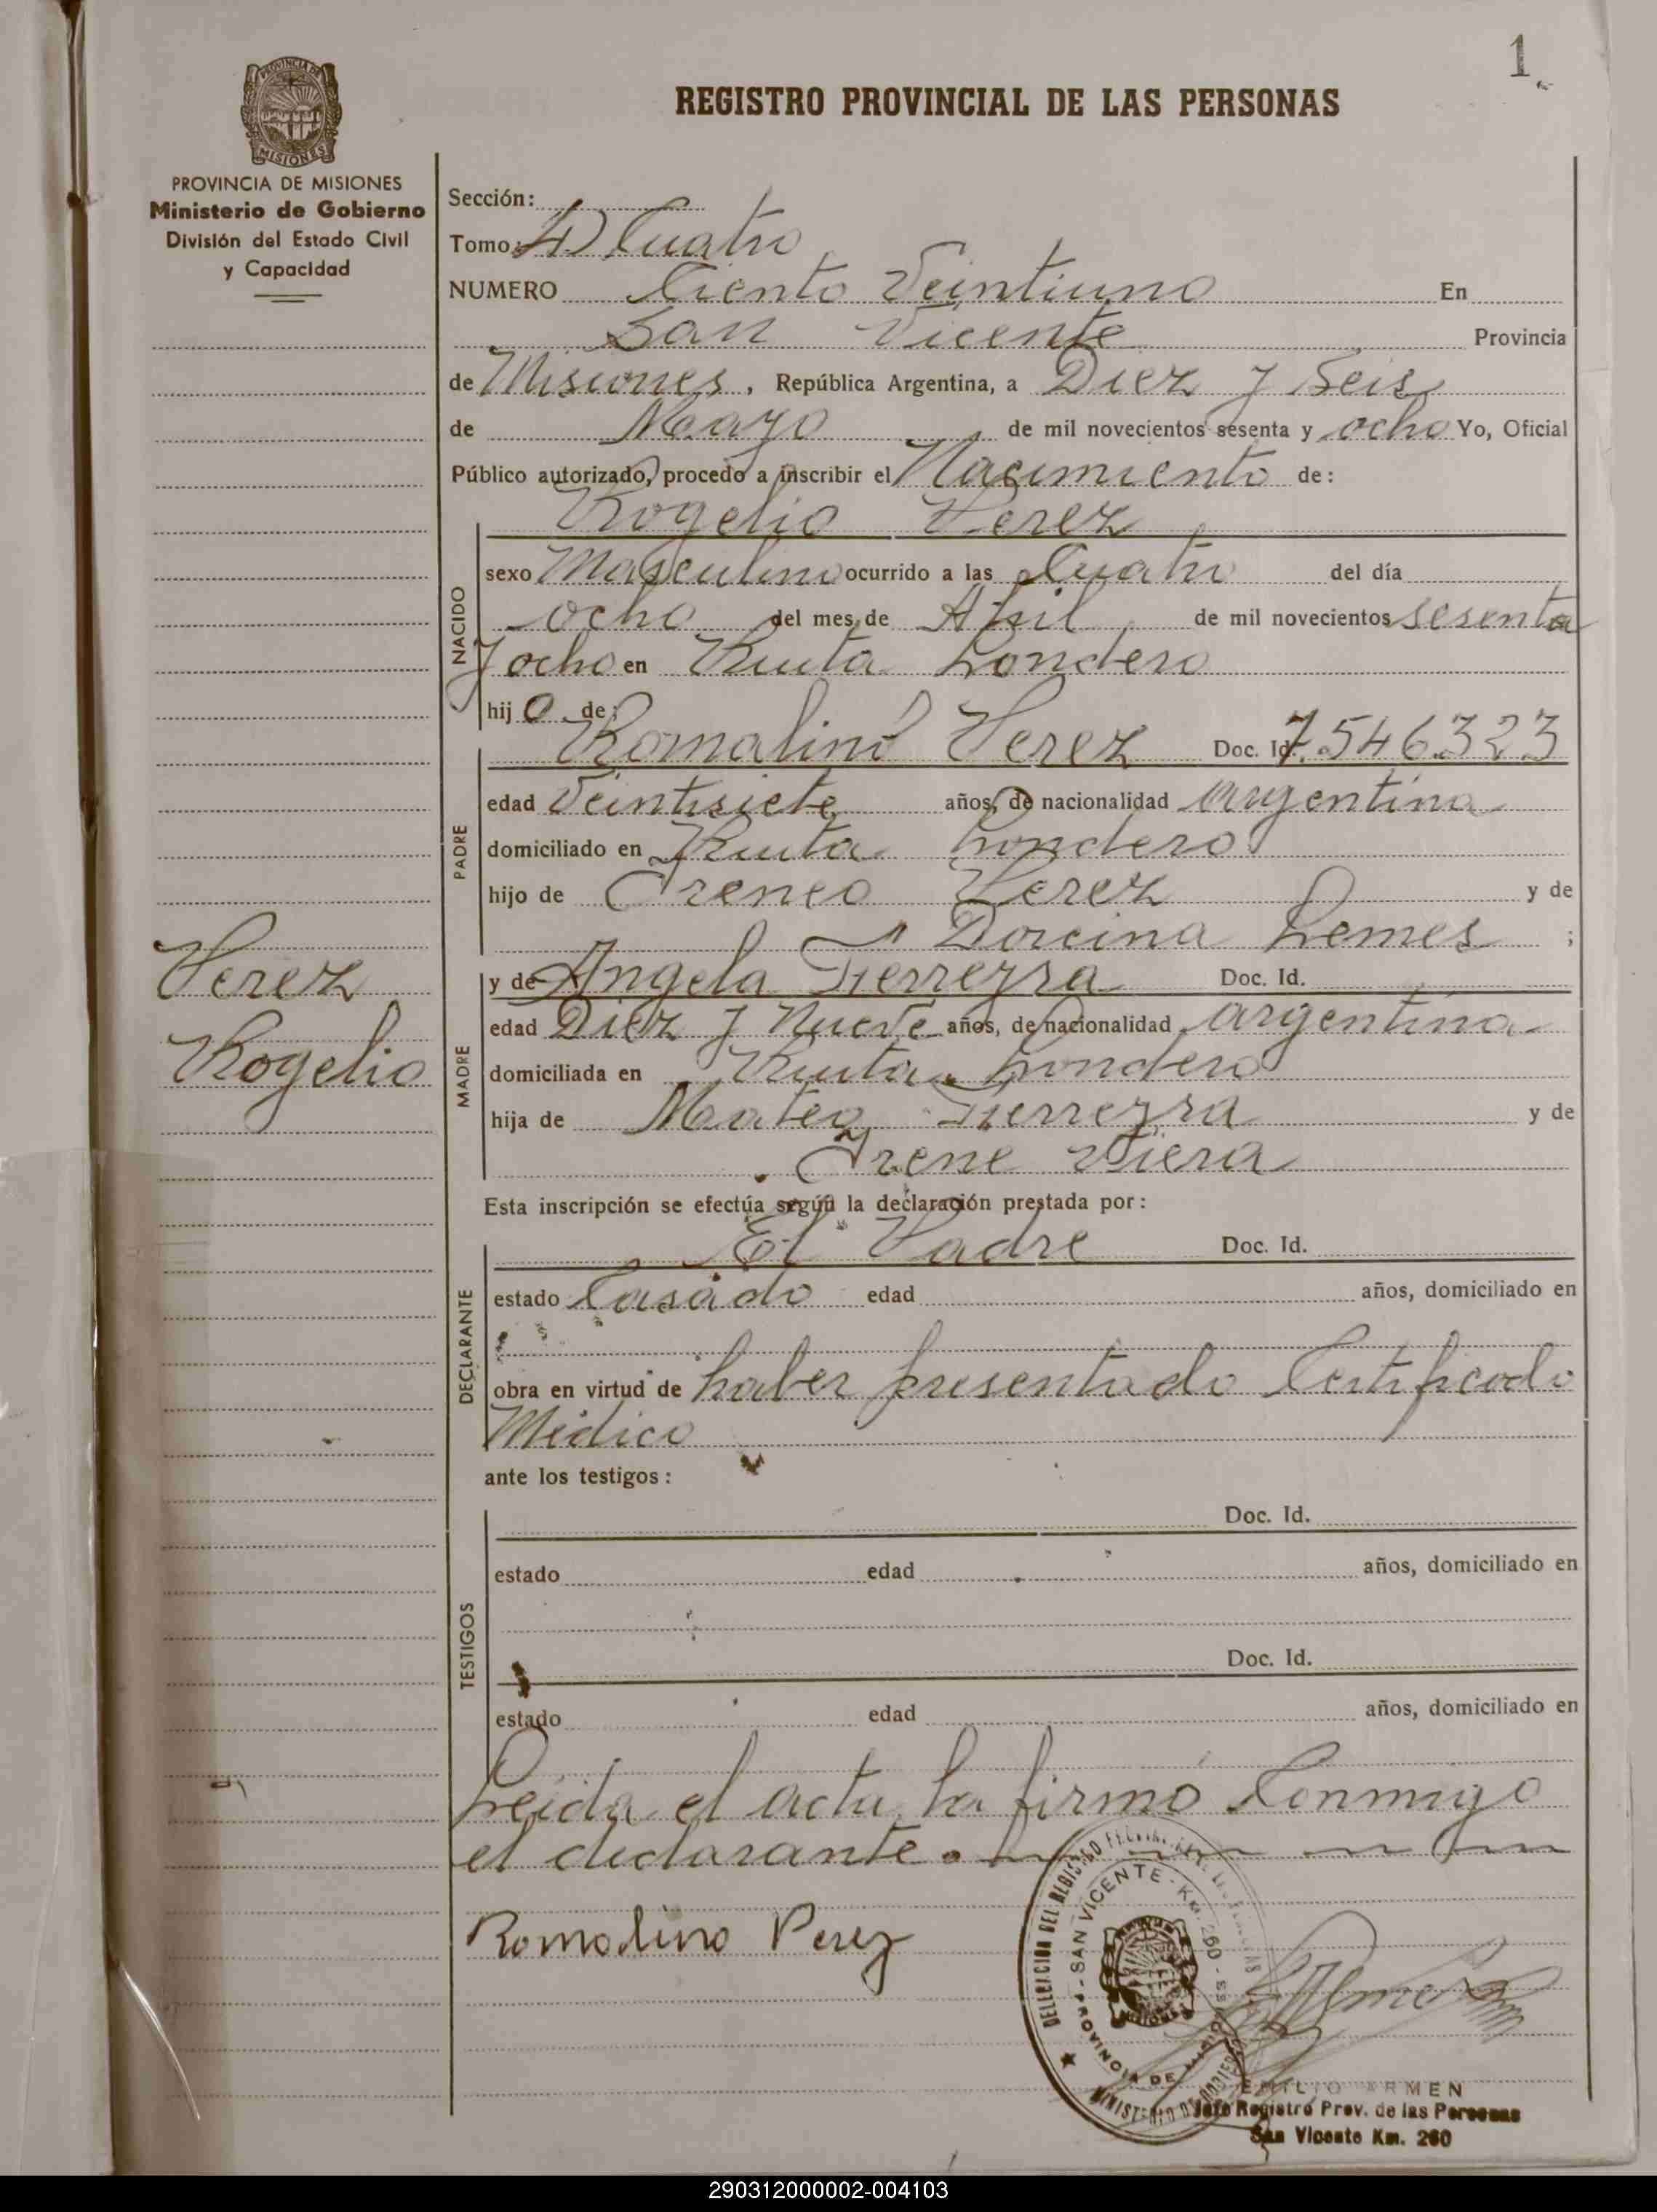 1
REGISTRO PROVINCIAL DE LAS PERSONAS
PROVINCIA DE
MISIONES
PROVINCIA DE MISIONES
Ministerio de Gobierno
División del Estado Civil
y Capacidad
Sección:
Tomo: 4) Cuatro
NUMERO Ciento Veintiuno En
San Vicente Provincia
de Misiones, República Argentina, a Diez y Seis
de Mayo de mil novecientos sesenta y ocho Yo, Oficial
Público autorizado, procedo a inscribir el Nacimiento de:
Rogelio Perez
NACIDO
sexo Masculino ocurrido a las Cuatro del día
ocho del mes de Abril de mil novecientos sesenta
y ocho en Ruta Londero
hijo de:
Romalino Perez Doc. Id. 7.546.323
PADRE
edad Veintisiete años, de nacionalidad argentina
domiciliado en Ruta Londero
hijo de Ireneo Perez y de
Dorcina Lemes ;
y de Angela Fierreyra Doc. Id.
MADRE
edad Diez y Nueve años, de nacionalidad argentina
domiciliada en Ruta Londero
hija de Mateo Fierreyra y de
Irene Viera
Perez
Rogelio
Esta inscripción se efectúa según la declaración prestada por:
El Padre Doc. Id.
DECLARANTE
estado Casado edad años, domiciliado en
obra en virtud de haber presentado Certificado
Médico
ante los testigos:
TESTIGOS
Doc. Id.
estado edad años, domiciliado en
Doc. Id.
estado edad años, domiciliado en
Leida el acta, la firmó Conmigo
el declarante.
Romalino Perez
SAN VICENTE - Km. 260
PROVINCIA DE
EMILIO ARMEN
Jefe Registro Prov. de las Personas
San Vicente Km. 260
290312000002-004103